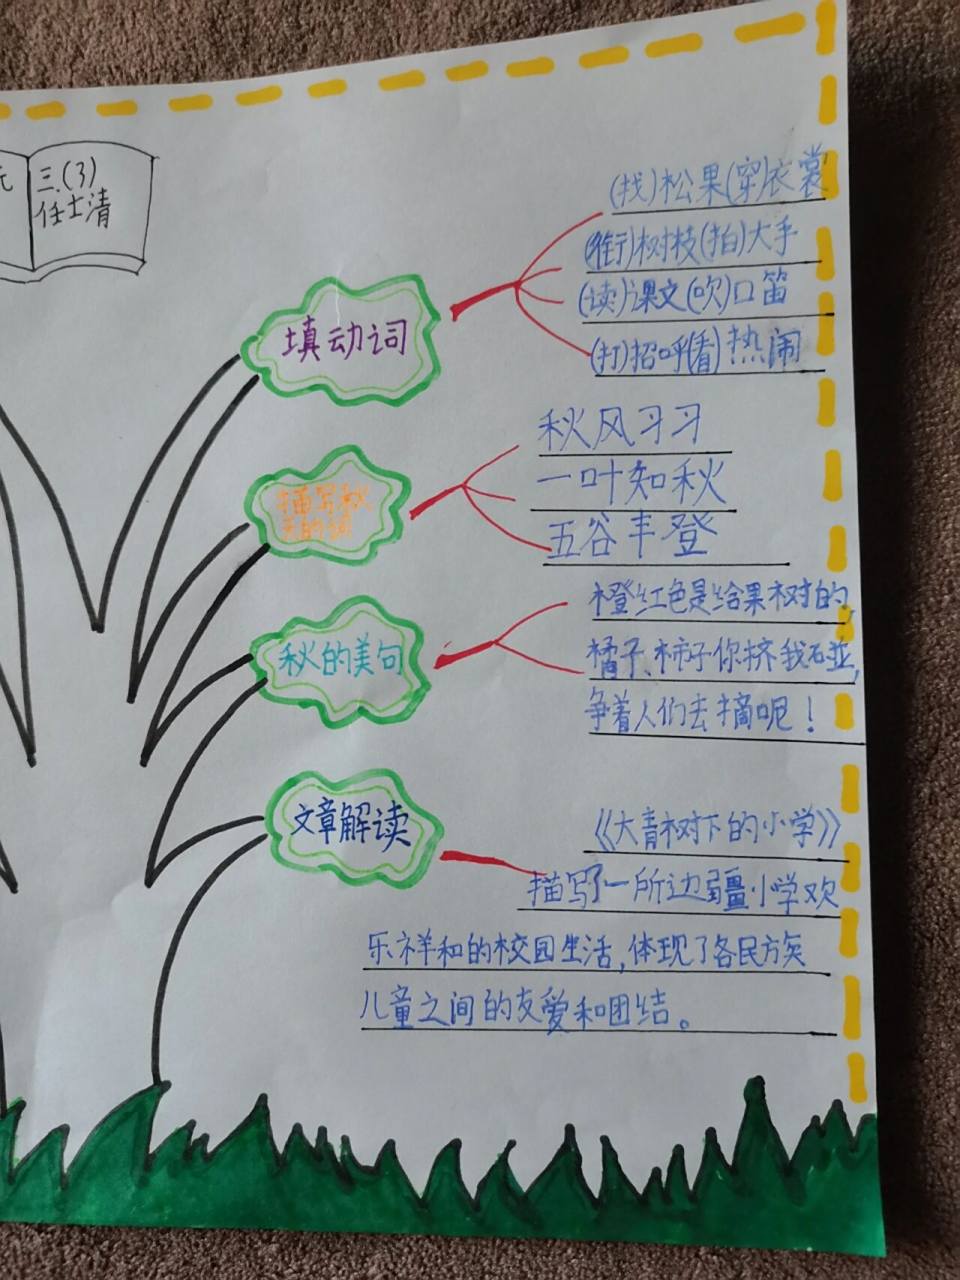 元
三.(3)
任士清
填动词
(找)松果(穿)衣裳
(衔)树枝(拍)大手
(读)课文(吹)口笛
(打)招呼(看)热闹
描写秋
天的词
秋风习习
一叶知秋
五谷丰登
秋的美句
橙红色是给果树的,
橘子、柿子你挤我碰,
争着人们去摘呢！
文章解读
《大青树下的小学》
描写了一所边疆小学欢
乐祥和的校园生活,体现了各民族
儿童之间的友爱和团结。